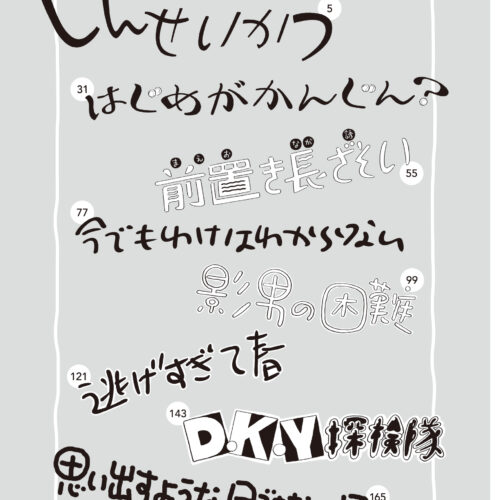 しんせいかつ 5
31 はじめがかんじん?
まえお なが 誘
前置き長ざそい 55
77 今でもわけはわからない
影男の困難 99
121 逃げすぎて春
143 D.K.Y探検隊
思い出すような日 165